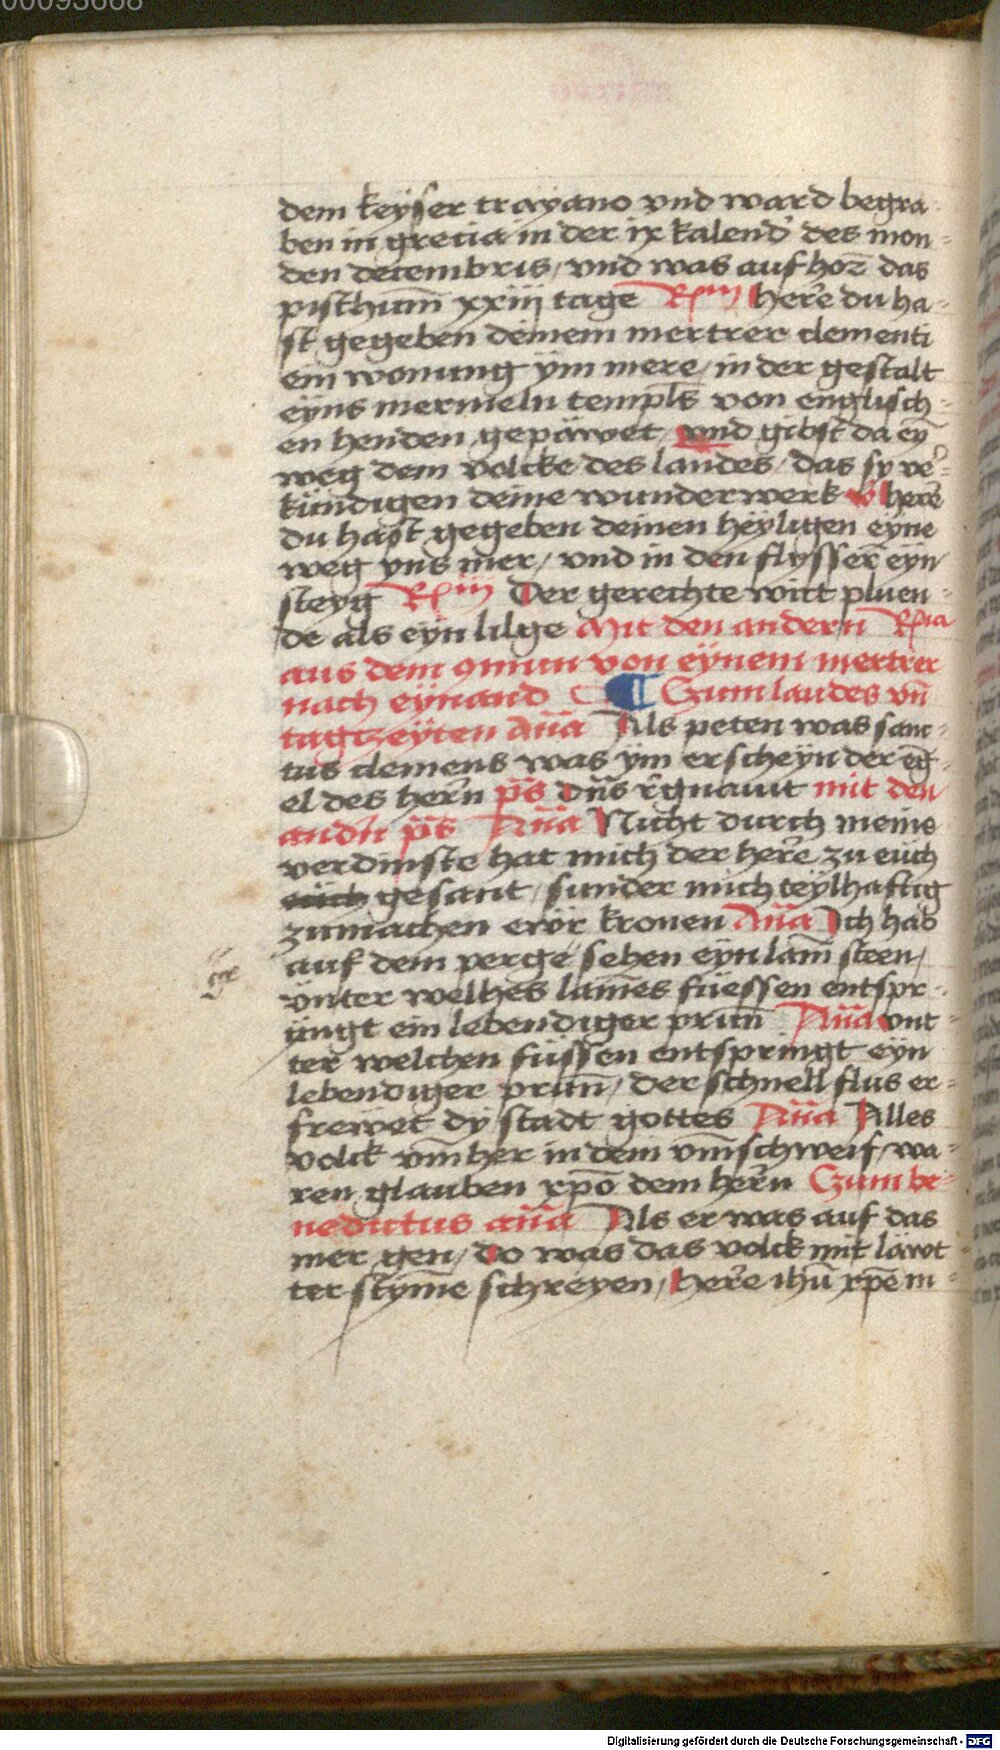 00093668
dem keÿser traÿano vnd ward begra-
ben in grecia in der ix kalend des mon-
den decembris / vnd was auf hoꝛ das
pisthum̄ xxiij tage Rꝑm here du ha-
st gegeben deinem mertrer clementi
ein wonung ÿm mere / in der gestalt
eÿns mermeln templs von englisch-
en henden gepawet / vnd gibst da eÿ
weg dem volcke des landes / das sy ve-
kündigen deine wunderwerk v here
du hast gegeben deinen heÿligen eÿne
weg ÿns mer / vnd in den flÿsseren eÿn
steyg Rꝑm Der gerechte wirt pluen-
de als eÿn lilge Mit den andern Rꝑia
aus dem 9mun von eÿnem mertrer
nach eÿnand ¶ Czum laudes vn̄
tagczeÿten An̄a Als peten was sanc-
tus clemens was ÿm erscheÿn der eg-
el des hern ps Dn̄s rḡnauit mit den
andn ps An̄a Nicht durch meine
verdinste hat mich der here zu euch
euch gesant / sunder mich teÿlhaftig
zumachen ewr kronen An̄a Ich hab
auf dem perge sehen eÿn lam̄ steen /
vnter welhes lam̄es füessen entspr-
üngt ein lebendiger prun̄ An̄a vnt-
ter welchen füssen entspringt eÿn
lebendiger prun̄ / der schnell flus er-
frewet dÿ stadt gottes An̄a Alles
volck vm̄her in dem vm̄schweif / wa-
ren glauben xp̄o dem hern Czum be-
nedictus an̄a Als er was auf das
mer gen / do was das volck mit lawt
ter stÿm̄e schreÿen / here ihū xp̄e in-
Digitalisierung gefördert durch die Deutsche Forschungsgemeinschaft - DFG